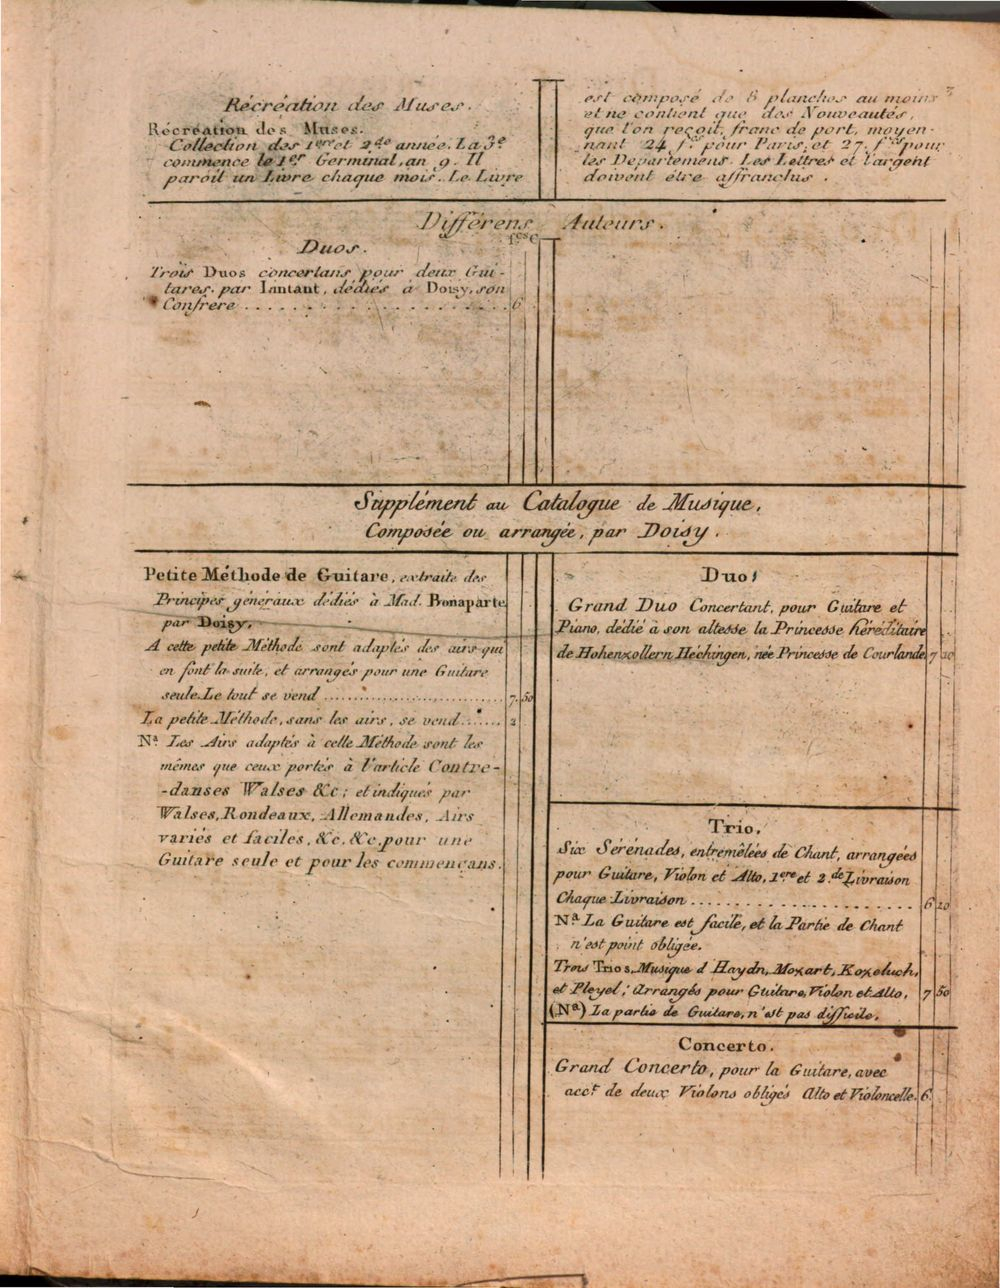 3
Récréation des Muses.
Récréation des Muses.
Collection des 1ere et 2de année. La 3e
commence le 1er Germinal, an 9. Il
paroît un Livre chaque mois. Le Livre
est composé de 8 planches au moins
et ne contient que des Nouveautés,
que l'on reçoit, franc de port, moyen-
nant 24 fcs pour Paris, et 27 fcs pour
les Departemens. Les Lettres et l'argent
doivent être affranchis.
Différens Auteurs.
fcs C
Duos.
Trois Duos concertans pour deux Gui-
tares, par Lintant, dédiés à Doisy, son
Confrere . . . . . . . . . . . . . . . 6
Supplément au Catalogue de Musique,
Composée ou arrangée, par Doisy.
Petite Méthode de Guitare, extraite des
Principes généraux dédiés à Mad. Bonaparte
par Doisy.
A cette petite Méthode sont adaptés des airs qui
en font la suite, et arrangés pour une Guitare
seule. Le tout se vend . . . . . . . . . . 7. 50
La petite Méthode, sans les airs, se vend . . . . . 2
Na. Les Airs adaptés à celle Méthode sont les
mêmes que ceux portés à l'article Contre-
-danses Walses &c; et indiqués par
Walses, Rondeaux, Allemandes, Airs
variés et faciles, &c. &c. pour une
Guitare seule et pour les commençans.
Duo,
Grand Duo Concertant, pour Guitare et
Piano, dédié à son altesse la Princesse héréditaire
de Hohenzollern Hechingen, née Princesse de Courlande, 7 20
Trio,
Six Sérénades, entremêlées de Chant, arrangées
pour Guitare, Violon et Alto, 1ere et 2.de Livraison
Chaque Livraison . . . . . . . . . . . . . . 6 20
Na La Guitare est facile, et la Partie de Chant
n'est point obligée.
Trois Trios, Musique d'Haydn, Mozart, Kozeluch,
et Pleyel; Arrangés pour Guitare, Violon et Alto, 7 50
(Na) La partie de Guitare, n'est pas difficile.
Concerto.
Grand Concerto, pour la Guitare, avec
acct de deux Violons obligés Alto et Violoncelle. 6